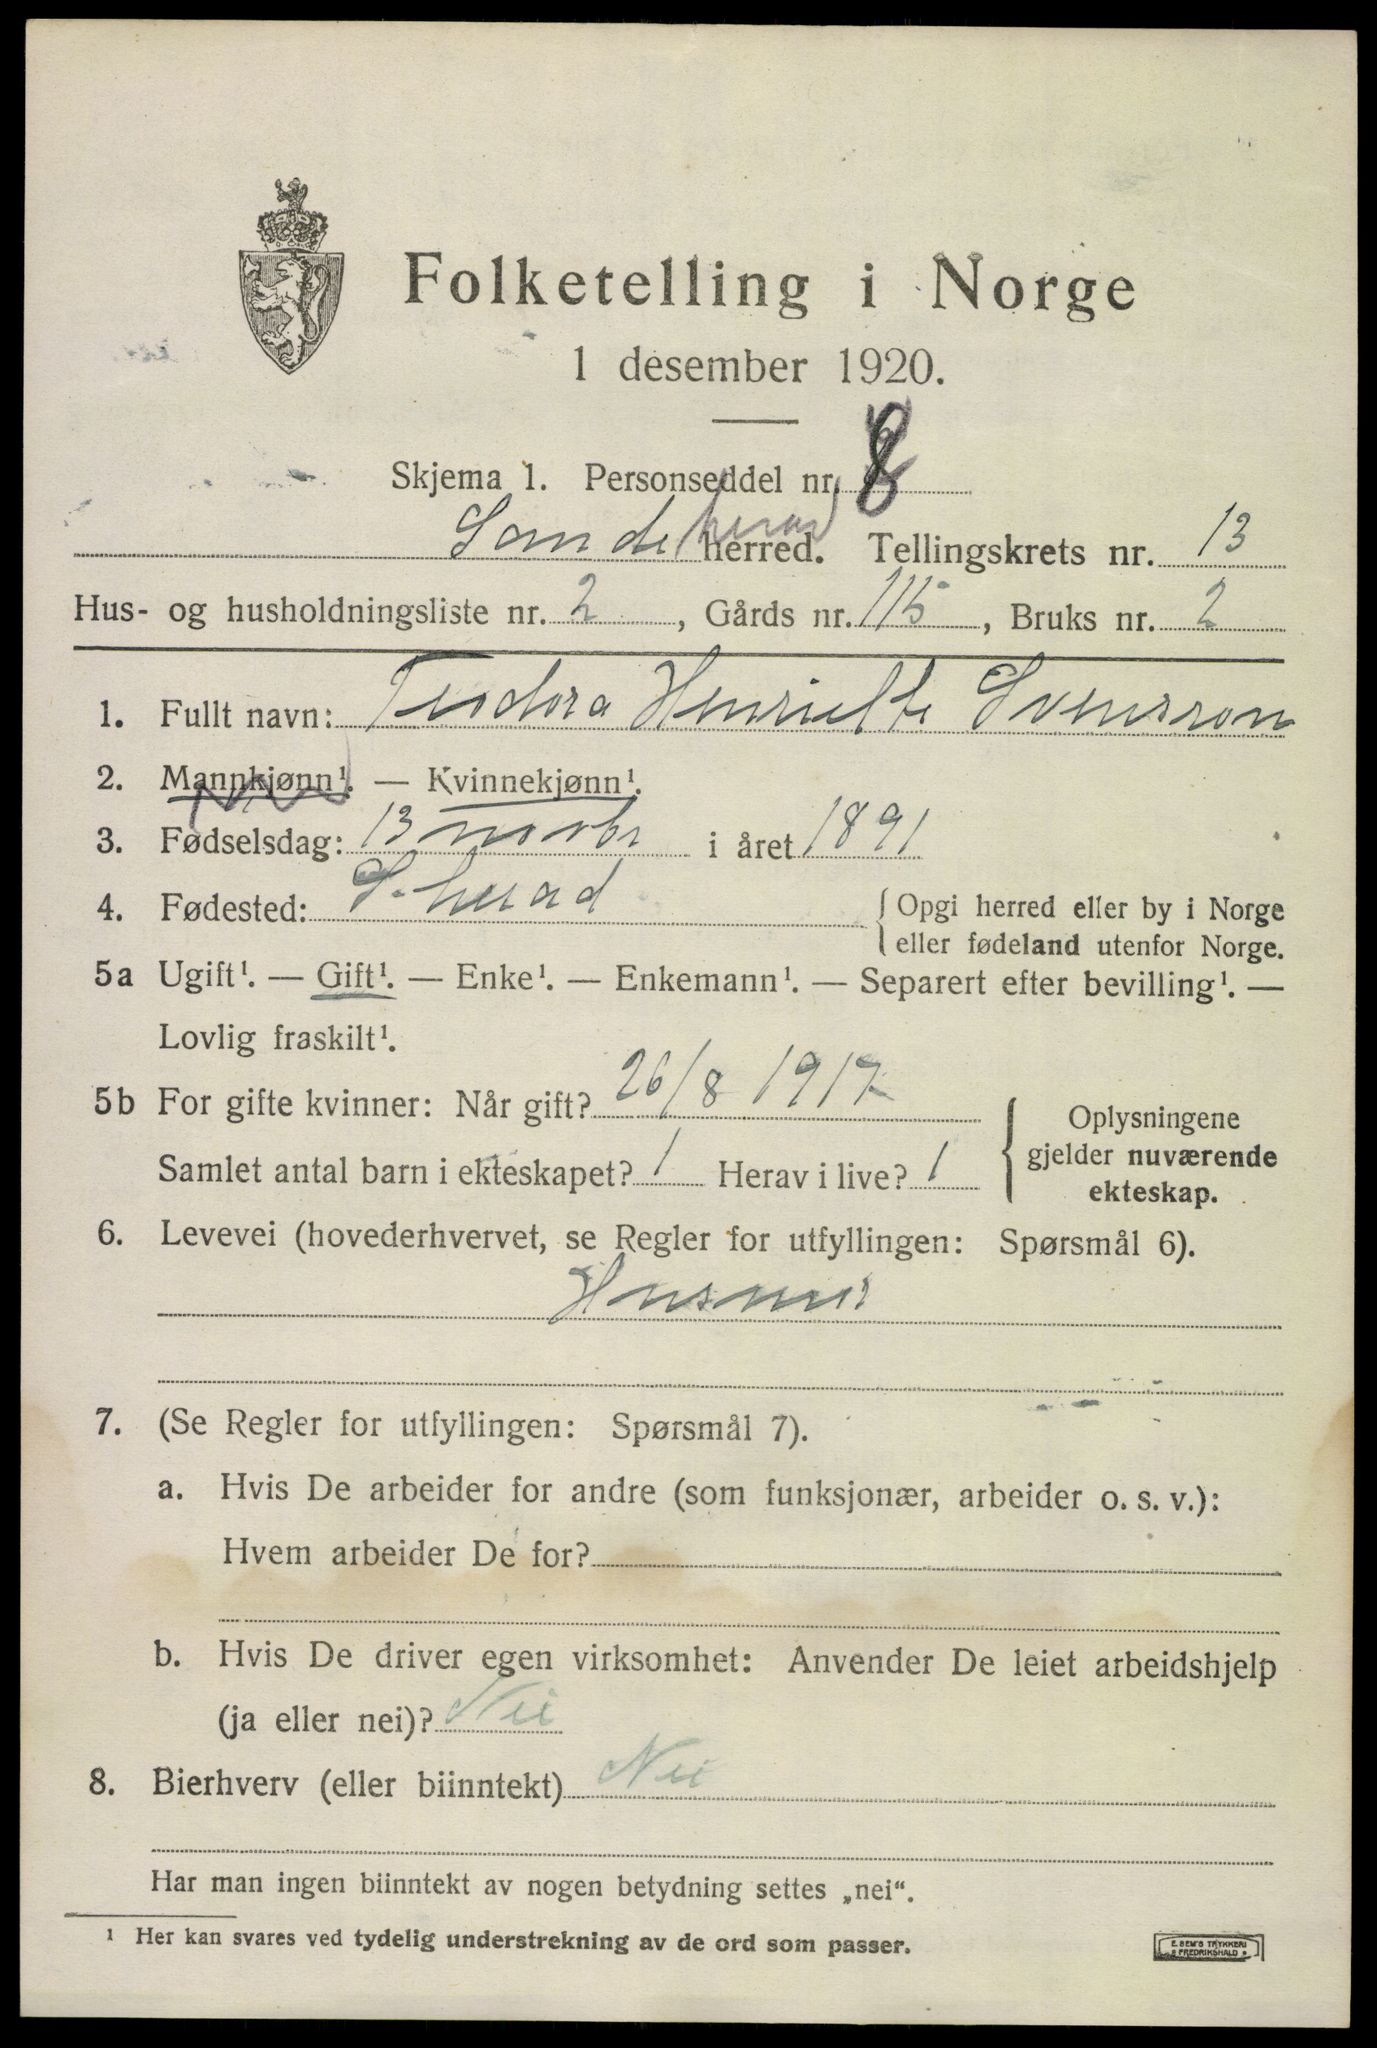 Folketelling i Norge
1 desember 1920.
Skjema 1. Personseddel nr. 8
Sandeherad herred. Tellingskrets nr. 13
Hus- og husholdningsliste nr. 2, Gårds nr. 115, Bruks nr. 2
1. Fullt navn: Teodora Henriette Svensson
2. Mannkjønn¹. — Kvinnekjønn¹.
3. Fødselsdag: 13 novbr i året 1891
4. Fødested: S. herad { Opgi herred eller by i Norge
eller fødeland utenfor Norge.
5a Ugift¹. — Gift¹. — Enke¹. — Enkemann¹. — Separert efter bevilling¹. —
Lovlig fraskilt¹.
5b For gifte kvinner: Når gift? 26/8 1917
Samlet antal barn i ekteskapet? 1 Herav i live? 1
{ Oplysningene
gjelder nuværende
ekteskap.
6. Levevei (hovederhvervet, se Regler for utfyllingen: Spørsmål 6).
Husmor
7. (Se Regler for utfyllingen: Spørsmål 7).
a. Hvis De arbeider for andre (som funksjonær, arbeider o. s. v.):
Hvem arbeider De for?
b. Hvis De driver egen virksomhet: Anvender De leiet arbeidshjelp
(ja eller nei)? Nei
8. Bierhverv (eller biinntekt) Nei
Har man ingen biinntekt av nogen betydning settes „nei“.
¹ Her kan svares ved tydelig understrekning av de ord som passer.
E. SEM'S TRYKKERI
FREDRIKSHALD